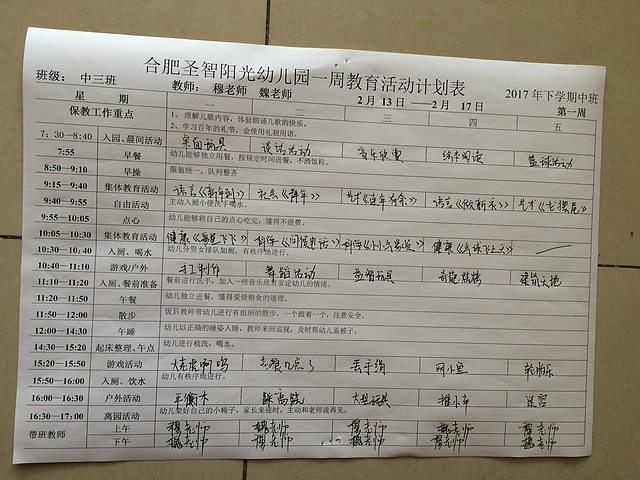 合肥圣智阳光幼儿园一周教育活动计划表
班级： 中三班 教师： 穆老师 魏老师 2 月 13 日 ——2 月 17 日 2017 年下学期中班
星 期 一 二 三 四 五 第一周
保教工作重点 1、理解儿歌内容，体验朗诵儿歌的快乐。
2、学习百年的礼节，会使用礼貌用语。
7：30—8:40 入园、晨间活动 桌面玩具 谈话活动 音乐欣赏 绘本阅读 篮球活动
7:55 早餐 幼儿能够独立用餐，按规定时间进餐，不洒饭粒。
8:50—9:10 早操 服装统一，队列整齐
9:15—9:40 集体教育活动 语言《新年到》 社会《拜年》 艺术《连年有余》 语言《 》 艺术《 》
9:40—9:55 自由活动 主动入厕小便洗手喝水。
9:55—10:05 点心 幼儿能够将自己的点心吃完，懂得不浪费。
10:05—10:30 集体教育活动 健康《 》 科学《 》 科学《 》 健康《气球上上下》
10:30—10:40 入厕、喝水 幼儿分男女排队如厕，有秩序地进行。
10:40—11:10 游戏/户外 手工制作 舞蹈活动 益智玩具 奇龙 建筑天地
11:10—11:20 入厕、餐前准备 餐前进行洗手，加入一些音乐欣赏安定幼儿的情绪。
11:20—11:50 午餐 幼儿独立进餐，懂得爱惜粮食的道理。
11:50—12:00 散步 饭后教师带幼儿进行有组织的散步，一个跟着一个，注意安全。
12:00—14:30 午睡 幼儿以正确的睡姿入睡，教师来回巡视，及时帮幼儿盖被子。
14:30—15:20 起床整理、午点 幼儿进行梳洗。喝水。
15:20—15:50 游戏活动 大老虎啊呜 老狼几点了 丢手绢 网小鱼
15:50—16:00 入厕、饮水 幼儿有秩序地进行。
16:00—16:30 户外活动 平衡木 大型玩具 推小车 迷宫
16:30—17:00 离园活动 幼儿架好自己的小椅子，家长来接时，主动和老师说再见。
带班教师 上午 穆老师 魏老师 穆老师 魏老师 穆老师
下午 魏老师 穆老师 魏老师 穆老师 魏老师